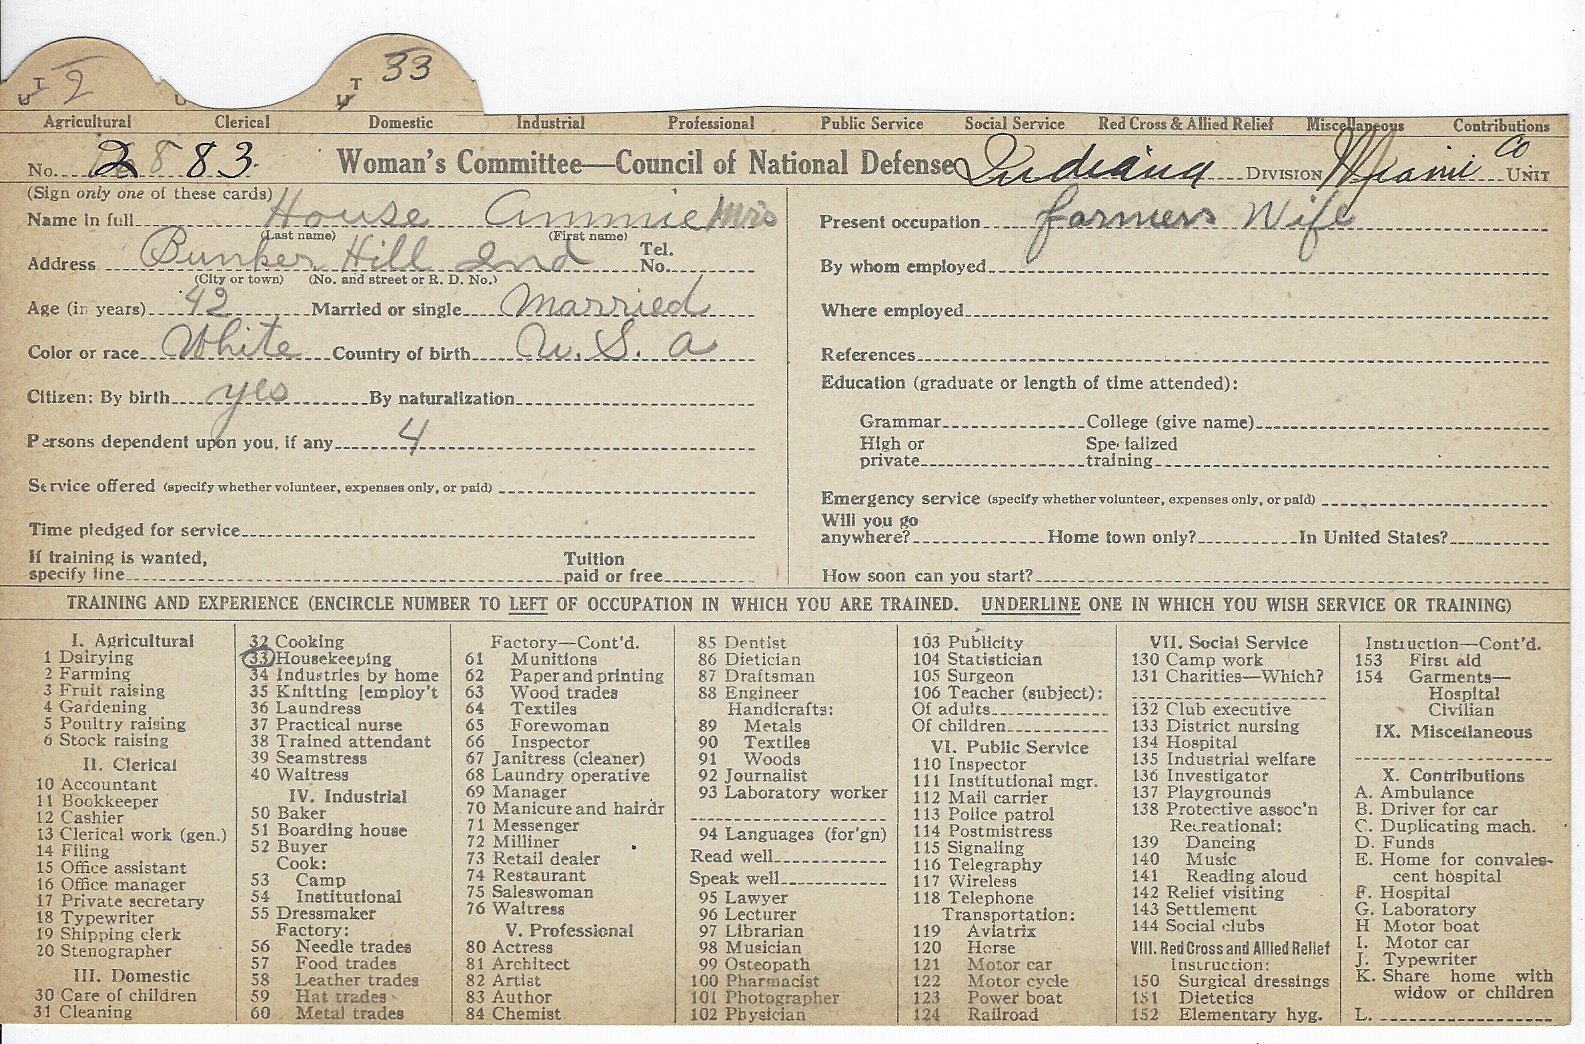 T 2 T 33
U U U
Agricultural Clerical Domestic Industrial Professional Public Service Social Service Red Cross & Allied Relief Miscellaneous Contributions
No. 2883. Woman's Committee—Council of National Defense Indiana DIVISION Miami Co UNIT
(Sign only one of these cards)
Name in full House Ammie Mrs
(Last name) (First name)
Address Bunker Hill Ind Tel. No.
(City or town) (No. and street or R. D. No.)
Age (in years) 42 Married or single Married
Color or race White Country of birth U. S. A
Citizen: By birth yes By naturalization
Persons dependent upon you, if any 4
Service offered (specify whether volunteer, expenses only, or paid)
Time pledged for service
If training is wanted,
specify line Tuition paid or free
Present occupation farmers Wife
By whom employed
Where employed
References
Education (graduate or length of time attended):
Grammar College (give name)
High or private Specialized training
Emergency service (specify whether volunteer, expenses only, or paid)
Will you go
anywhere? Home town only? In United States?
How soon can you start?
TRAINING AND EXPERIENCE (ENCIRCLE NUMBER TO LEFT OF OCCUPATION IN WHICH YOU ARE TRAINED. UNDERLINE ONE IN WHICH YOU WISH SERVICE OR TRAINING)
I. Agricultural
1 Dairying
2 Farming
3 Fruit raising
4 Gardening
5 Poultry raising
6 Stock raising
II. Clerical
10 Accountant
11 Bookkeeper
12 Cashier
13 Clerical work (gen.)
14 Filing
15 Office assistant
16 Office manager
17 Private secretary
18 Typewriter
19 Shipping clerk
20 Stenographer
III. Domestic
30 Care of children
31 Cleaning
32 Cooking
33 Housekeeping
34 Industries by home
35 Knitting [employ't
36 Laundress
37 Practical nurse
38 Trained attendant
39 Seamstress
40 Waitress
IV. Industrial
50 Baker
51 Boarding house
52 Buyer
Cook:
53 Camp
54 Institutional
55 Dressmaker
Factory:
56 Needle trades
57 Food trades
58 Leather trades
59 Hat trades
60 Metal trades
Factory—Cont'd.
61 Munitions
62 Paper and printing
63 Wood trades
64 Textiles
65 Forewoman
66 Inspector
67 Janitress (cleaner)
68 Laundry operative
69 Manager
70 Manicure and hairdr
71 Messenger
72 Milliner
73 Retail dealer
74 Restaurant
75 Saleswoman
76 Waitress
V. Professional
80 Actress
81 Architect
82 Artist
83 Author
84 Chemist
85 Dentist
86 Dietician
87 Draftsman
88 Engineer
Handicrafts:
89 Metals
90 Textiles
91 Woods
92 Journalist
93 Laboratory worker
94 Languages (for'gn)
Read well
Speak well
95 Lawyer
96 Lecturer
97 Librarian
98 Musician
99 Osteopath
100 Pharmacist
101 Photographer
102 Physician
103 Publicity
104 Statistician
105 Surgeon
106 Teacher (subject):
Of adults
Of children
VI. Public Service
110 Inspector
111 Institutional mgr.
112 Mail carrier
113 Police patrol
114 Postmistress
115 Signaling
116 Telegraphy
117 Wireless
118 Telephone
Transportation:
119 Aviatrix
120 Horse
121 Motor car
122 Motor cycle
123 Power boat
124 Railroad
VII. Social Service
130 Camp work
131 Charities—Which?
132 Club executive
133 District nursing
134 Hospital
135 Industrial welfare
136 Investigator
137 Playgrounds
138 Protective assoc'n
Recreational:
139 Dancing
140 Music
141 Reading aloud
142 Relief visiting
143 Settlement
144 Social clubs
VIII. Red Cross and Allied Relief
Instruction:
150 Surgical dressings
151 Dietetics
152 Elementary hyg.
Instruction—Cont'd.
153 First aid
154 Garments—
Hospital
Civilian
IX. Miscellaneous
X. Contributions
A. Ambulance
B. Driver for car
C. Duplicating mach.
D. Funds
E. Home for convales-
cent hospital
F. Hospital
G. Laboratory
H Motor boat
I. Motor car
J. Typewriter
K. Share home with
widow or children
L.